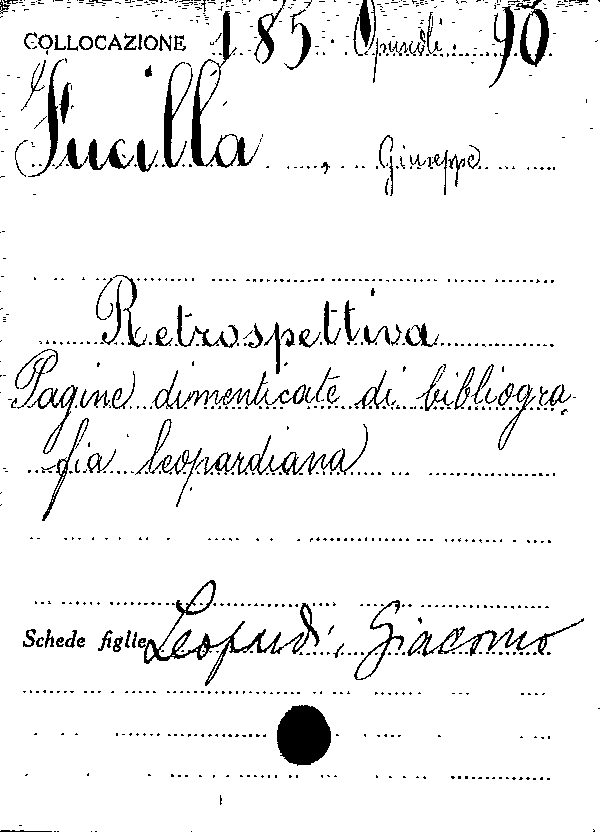 COLLOCAZIONE 185 Opuscoli. 90
Fucilla, Giuseppe
Retrospettiva
Pagine dimenticate di bibliogra-
fia leopardiana
Schede figlie Leopardi, Giacomo